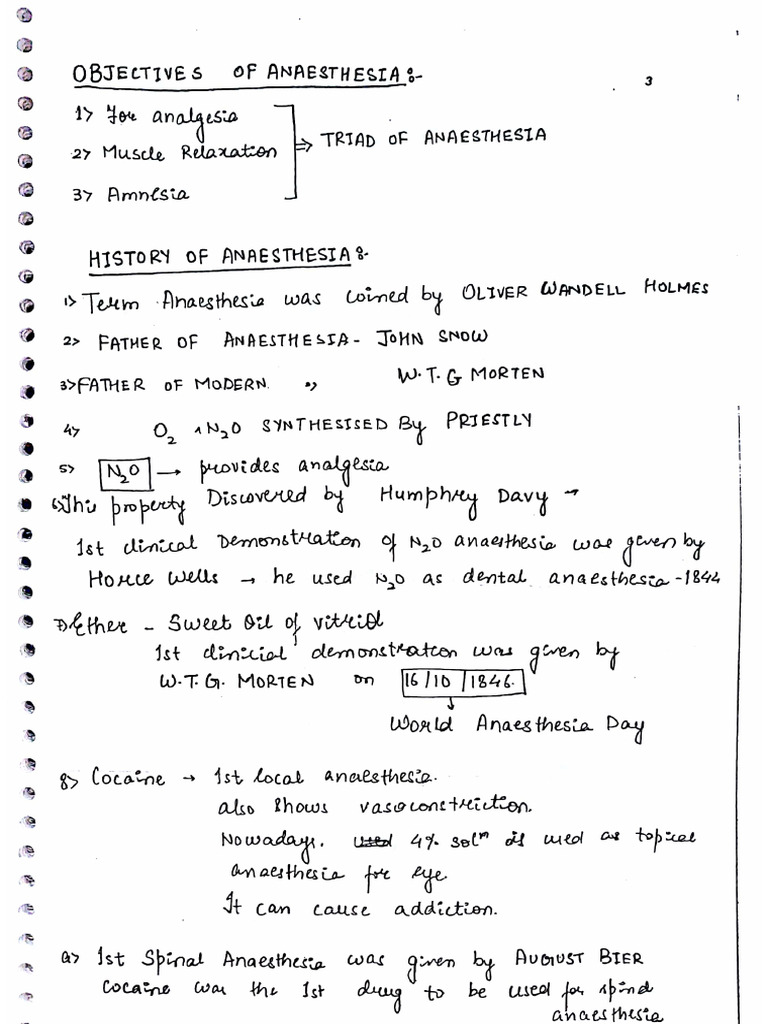 OBJECTIVES OF ANAESTHESIA :-
3
1> For analgesia
2> Muscle Relaxation
3> Amnesia
⇒ TRIAD OF ANAESTHESIA
HISTORY OF ANAESTHESIA :-
1> Term Anaesthesia was coined by OLIVER WANDELL HOLMES
2> FATHER OF ANAESTHESIA - JOHN SNOW
3> FATHER OF MODERN " W.T.G MORTEN
4> O2 ^ N2O SYNTHESISED By PRIESTLY
5> N2O → provides analgesia
6> This property Discovered by Humphrey Davy →
1st clinical Demonstration of N2O anaesthesia was given by
Horce Wells → he used N2O as dental anaesthesia - 1844
7> Ether - Sweet Oil of vitriol
1st clinicial demonstration was given by
W.T.G. MORTEN on 16/10/1846.
World Anaesthesia Day
8> Cocaine → 1st local anaesthesia.
also shows vasoconstriction.
Nowadays. used 4% solm is used as topical
anaesthesia for eye.
It can cause addiction.
9> 1st Spinal Anaesthesia was given by AUGUST BIER
Cocaine was the 1st drug to be used for spinal
anaesthesia